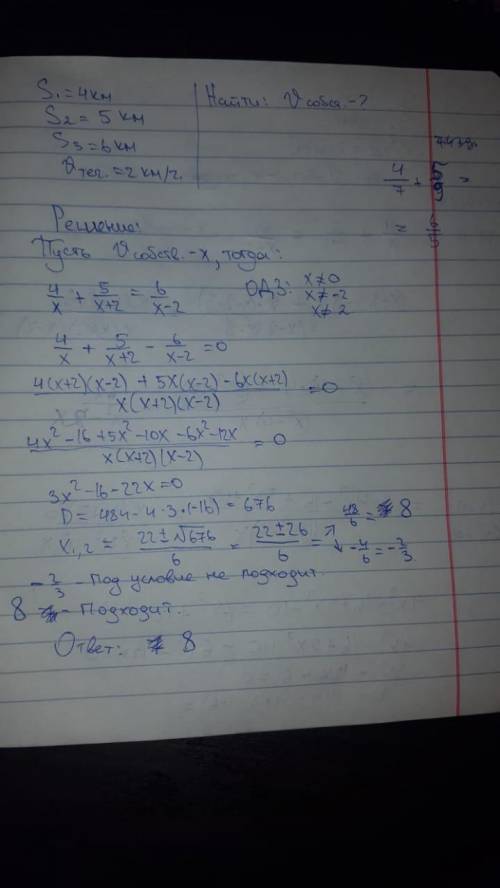 S₁ = 4 км
S₂ = 5 км
S₃ = 6 км
υ теч. = 2 км/ч.
Найти: υ собств - ?
4/7 + 5/9 =
= 6/5
Решение:
Пусть υ собств. - x, тогда:
4/x + 5/(x+2) = 6/(x-2)
ОДЗ: x≠0
x≠-2
x≠2
4/x + 5/(x+2) - 6/(x-2) = 0
(4(x+2)(x-2) + 5x(x-2) - 6x(x+2))/(x(x+2)(x-2)) = 0
(4x² - 16 + 5x² - 10x - 6x² - 12x)/(x(x+2)(x-2)) = 0
3x² - 16 - 22x = 0
D = 484 - 4·3·(-16) = 676
x₁,₂ = (22 ± √676)/6 = (22 ± 26)/6 = ↗ 48/6 = 8
↓ -4/6 = -2/3
-2/3 - Под условие не подходит.
8 - Подходит.
Ответ: 8